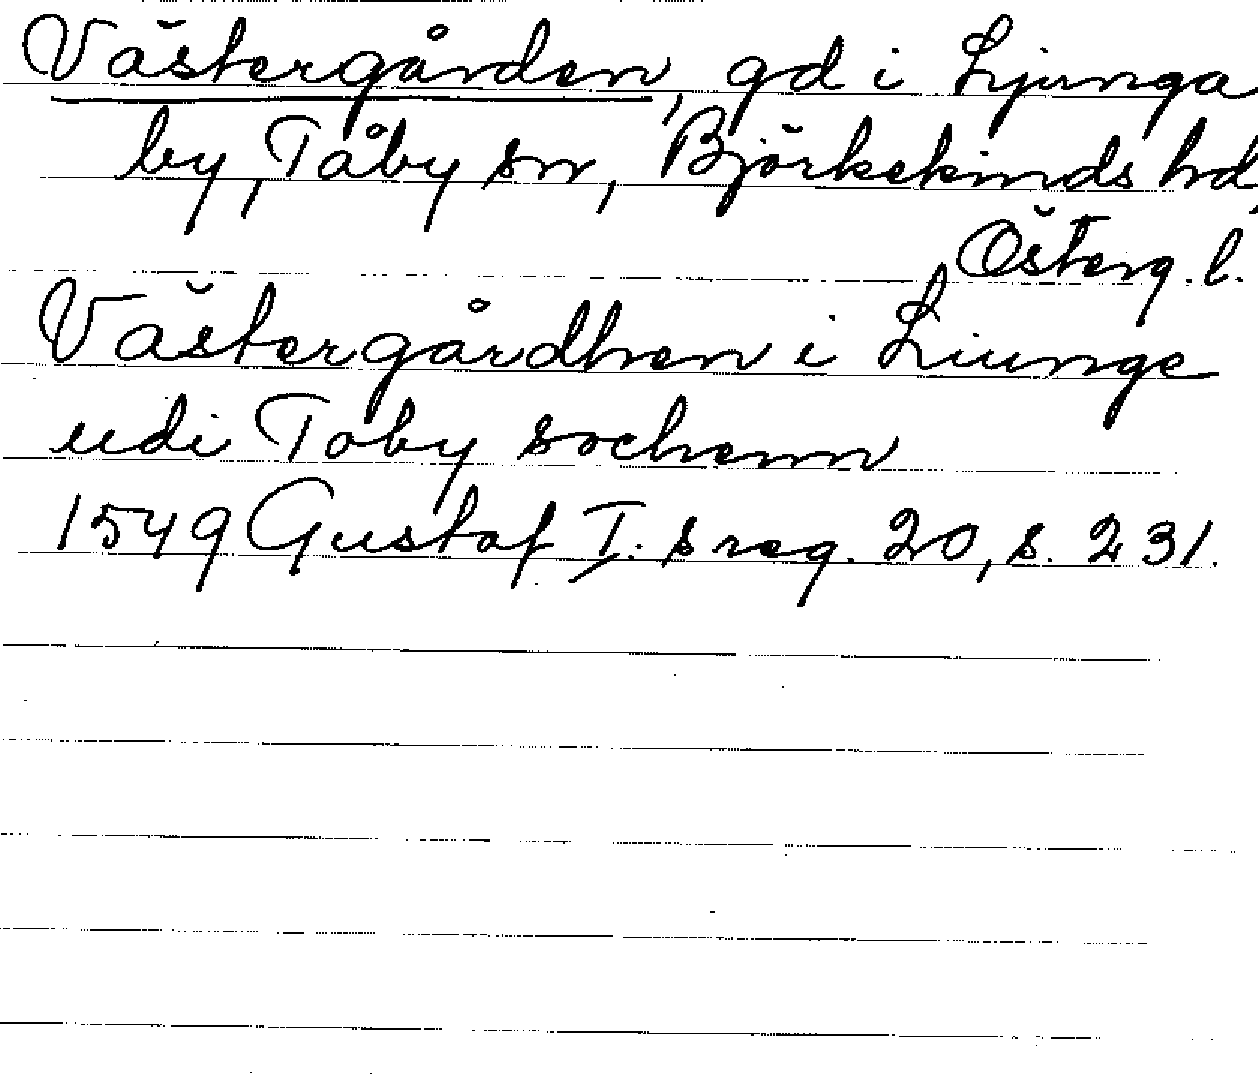 Västergården, gd i Ljunga
by, Tåby sn, Björkekinds hd,
Österg. l.
Västergårdhen i Liunge
udi Toby sochenn
1549 Gustaf I:s reg. 20, s. 231.